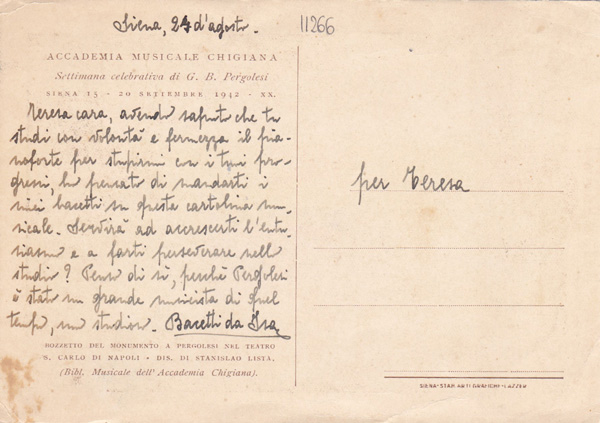 Siena, 24 d'agosto.
11266
ACCADEMIA MUSICALE CHIGIANA
Settimana celebrativa di G. B. Pergolesi
SIENA 15 - 20 SETTEMBRE 1942 - XX.
Teresa cara, avendo saputo che tu
studi con volontà e fermezza il pia-
noforte per stupirmi con i tuoi pro-
gressi, ho pensato di mandarti i
miei bacetti su questa cartolina mu-
sicale. Servirà ad accrescerti l'entu-
siasmo e a farti perseverare nello
studio? Penso di sì, perchè Pergolesi
è stato un grande musicista di quel
tempo, uno studioso. Bacetti da Isa
per Teresa
BOZZETTO DEL MONUMENTO A PERGOLESI NEL TEATRO
S. CARLO DI NAPOLI - DIS. DI STANISLAO LISTA.
(Bibl. Musicale dell'Accademia Chigiana).
SIENA-STAB. ARTI GRAFICHE-LAZZERI